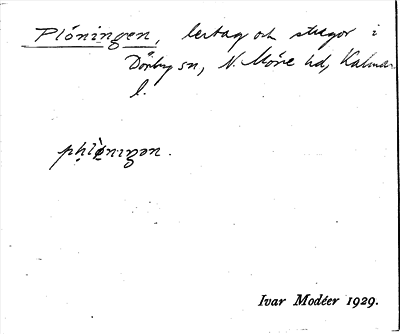 Plóningen, lertag och stugor i
Dörby sn, N. Möre hd, Kalmar
l.
Ivar Modéer 1929.